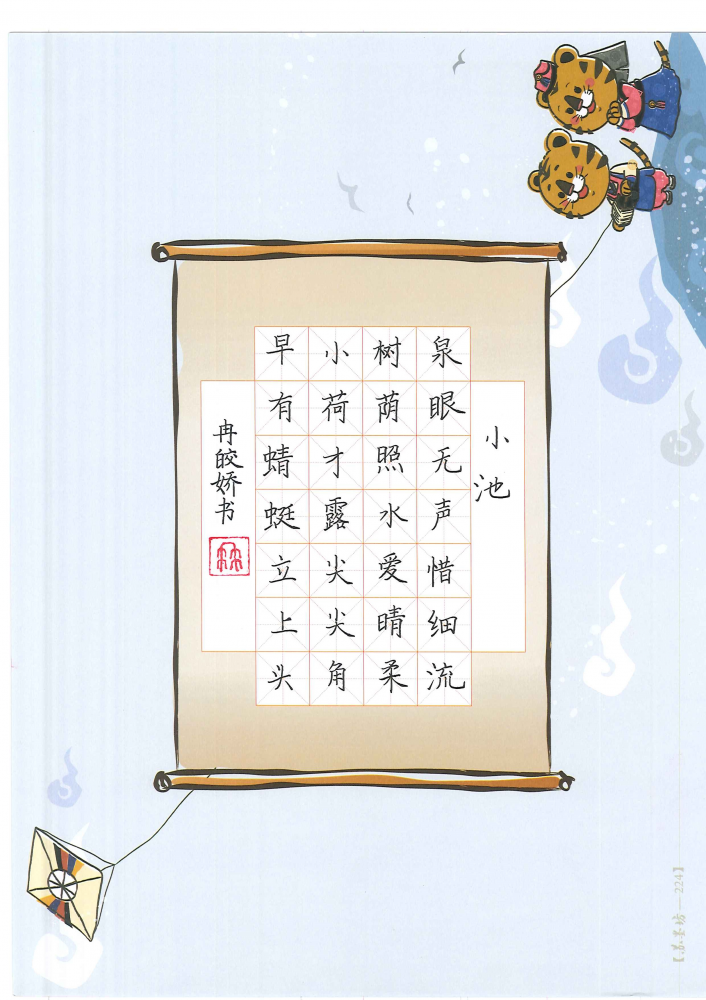 小池
泉眼无声惜细流
树荫照水爱晴柔
小荷才露尖尖角
早有蜻蜓立上头
冉皎娇书
【苏墨坊—224】